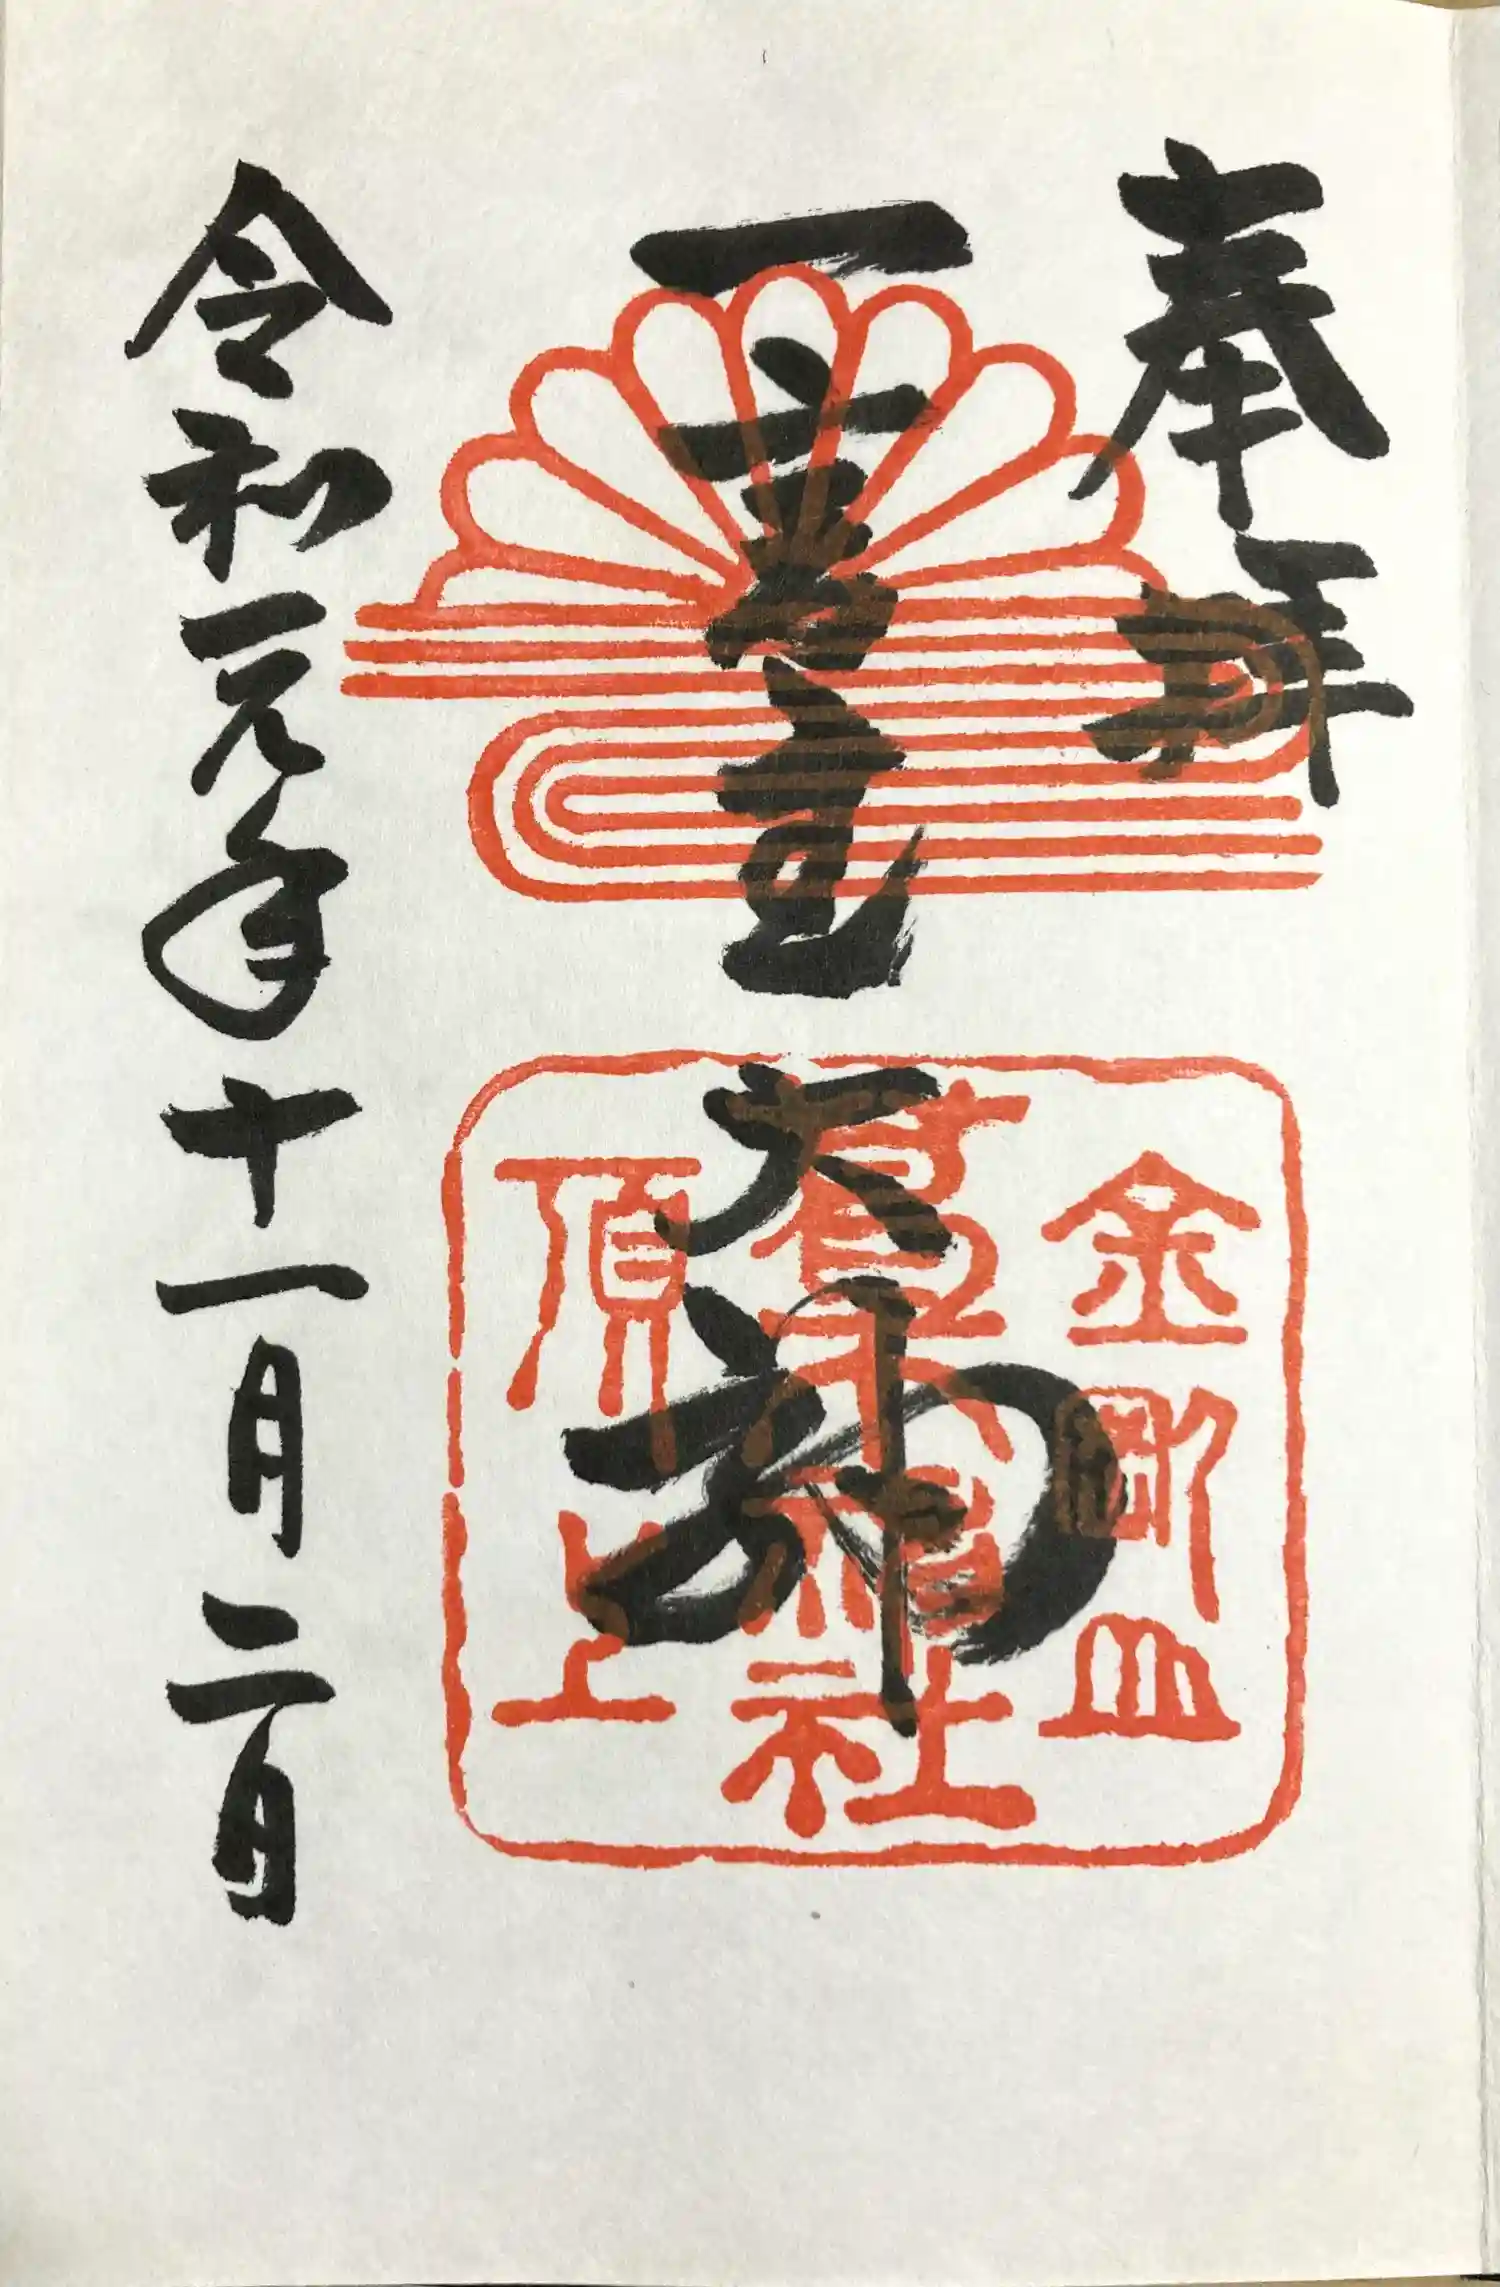 奉拝
一言主大神
金剛山
葛木神社
頂上
令和元年十一月二日